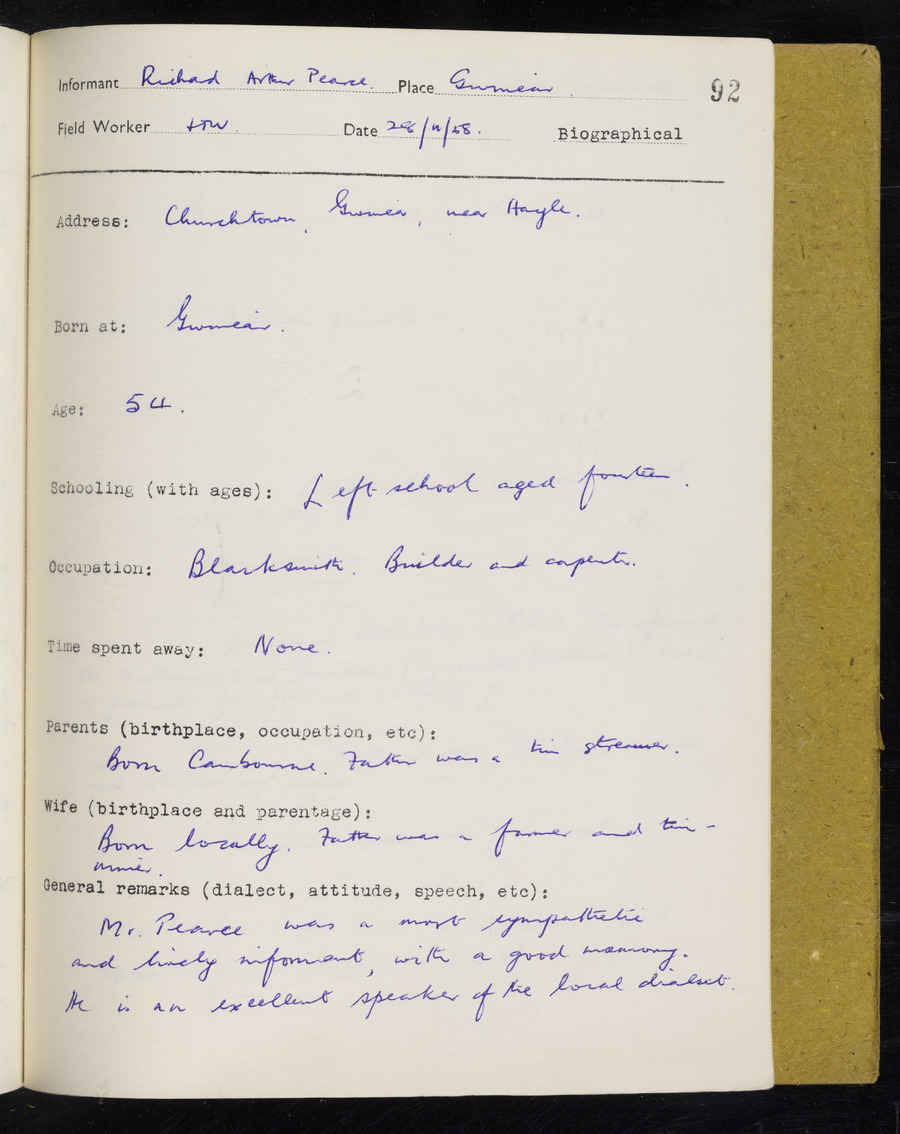 Informant Richard Arthur Pearce. Place Gwinear. 92
Field Worker Date 28/11/58. Biographical
Address: Churchtown, Gwinear, near Hayle.
Born at: Gwinear.
Age: 54.
Schooling (with ages): Left school aged fourteen.
Occupation: Blacksmith. Builder and carpenter.
Time spent away: None.
Parents (birthplace, occupation, etc):
Born Cambourne. Father was a tin streamer.
Wife (birthplace and parentage):
Born locally. Father was a farmer and tin-
miner.
General remarks (dialect, attitude, speech, etc):
Mr. Pearce was a most sympathetic
and lively informant, with a good memory.
He is an excellent speaker of the local dialect.